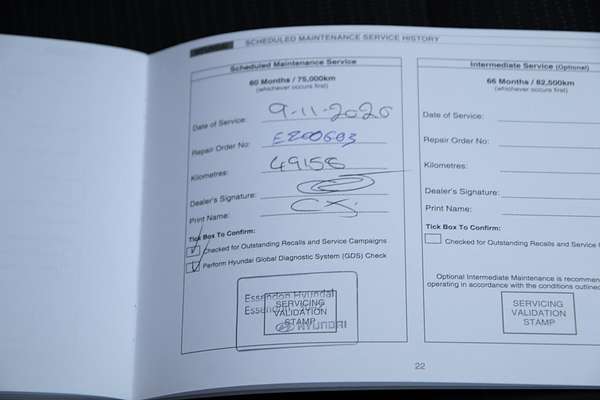 HYUNDAI SCHEDULED MAINTENANCE SERVICE HISTORY
Scheduled Maintenance Service
60 Months / 75,000km
(whichever occurs first)
Date of Service: 9-11-2020
Repair Order No: E200603
Kilometres: 49158
Dealer's Signature:
Print Name:
Tick Box To Confirm:
Checked for Outstanding Recalls and Service Campaigns
Perform Hyundai Global Diagnostic System (GDS) Check
Essendon Hyundai
Essendon
SERVICING
VALIDATION
STAMP
HYUNDAI
Intermediate Service (Optional)
66 Months / 82,500km
(whichever occurs first)
Date of Service:
Repair Order No:
Kilometres:
Dealer's Signature:
Print Name:
Tick Box To Confirm:
Checked for Outstanding Recalls and Service
Optional Intermediate Maintenance is
operating in accordance with the conditions outlined
SERVICING
VALIDATION
STAMP
22